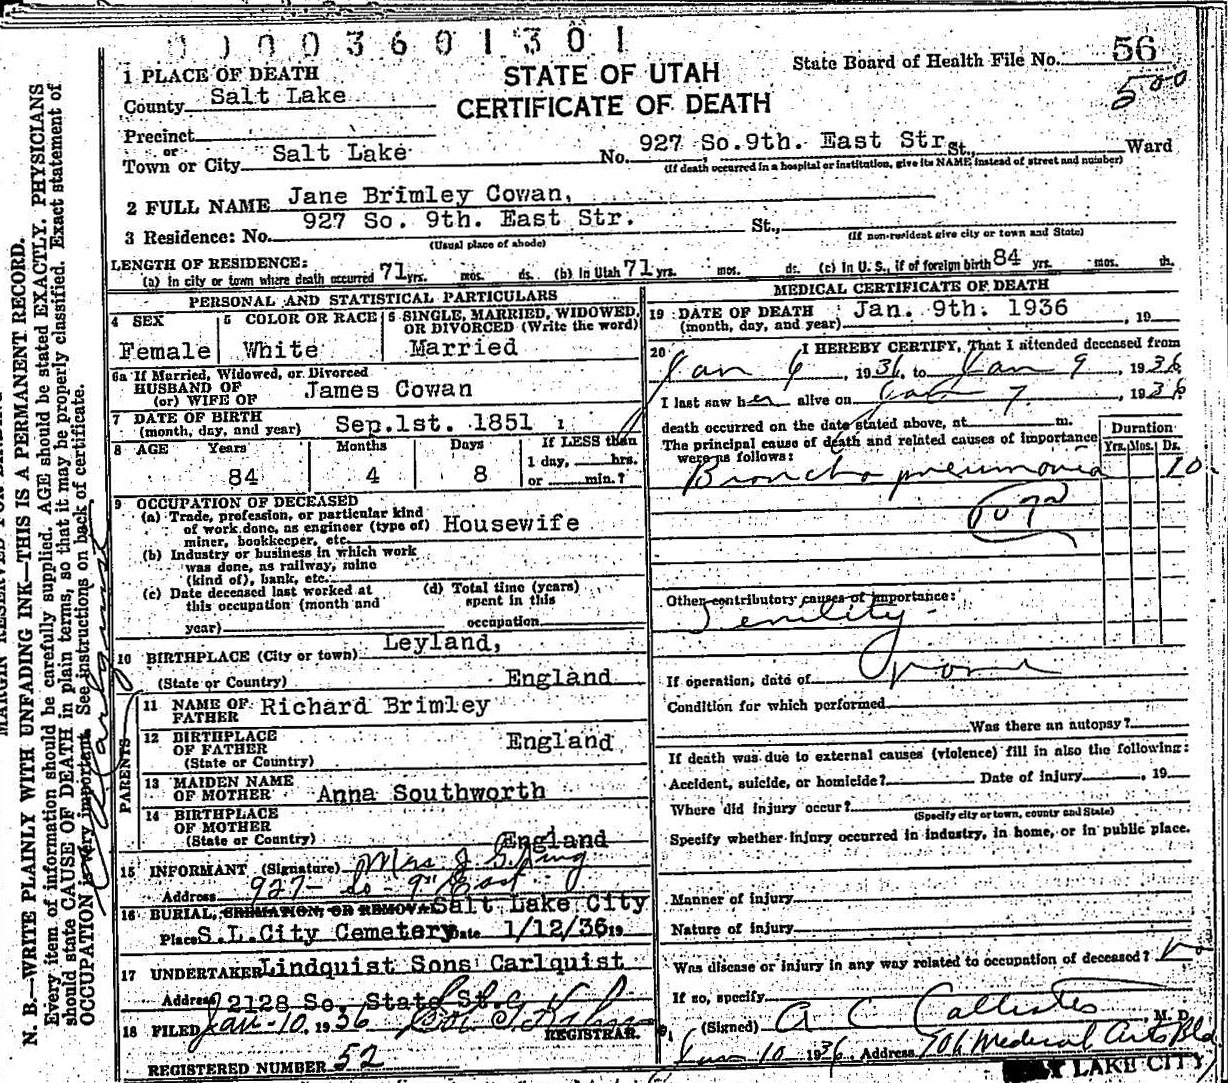 0 1 0 0 3 6 0 1 3 0 1
STATE OF UTAH
CERTIFICATE OF DEATH
State Board of Health File No. 56
500
1 PLACE OF DEATH
County Salt Lake
Precinct
or
Town or City Salt Lake No. 927 So.9th. East Str St., Ward
(If death occurred in a hospital or institution, give its NAME instead of street and number)
2 FULL NAME Jane Brimley Cowan,
3 Residence: No. 927 So. 9th. East Str. St.,
(Usual place of abode) (If non-resident give city or town and State)
LENGTH OF RESIDENCE:
(a) in city or town where death occurred 71 yrs. mos. ds. (b) In Utah 71 yrs. mos. ds. (c) In U. S., if of foreign birth 84 yrs. mos.
PERSONAL AND STATISTICAL PARTICULARS
4 SEX Female
5 COLOR OR RACE White
6 SINGLE, MARRIED, WIDOWED, OR DIVORCED (Write the word) Married
6a If Married, Widowed, or Divorced
HUSBAND OF
(or) WIFE OF James Cowan
7 DATE OF BIRTH
(month, day, and year) Sep.1st. 1851
8 AGE Years 84 Months 4 Days 8 If LESS than
1 day, hrs.
or min.?
9 OCCUPATION OF DECEASED
(a) Trade, profession, or particular kind
of work done, as engineer (type of)
miner, bookkeeper, etc. Housewife
(b) Industry or business in which work
was done, as railway, mine
(kind of), bank, etc.
(c) Date deceased last worked at
this occupation (month and
year)
(d) Total time (years)
spent in this
occupation
10 BIRTHPLACE (City or town) Leyland,
(State or Country) England
PARENTS
11 NAME OF
FATHER Richard Brimley
12 BIRTHPLACE
OF FATHER
(State or Country) England
13 MAIDEN NAME
OF MOTHER Anna Southworth
14 BIRTHPLACE
OF MOTHER
(State or Country) England
15 INFORMANT (Signature) Mrs J G King
Address 927 - So - 9th East
16 BURIAL, CREMATION, OR REMOVAL Salt Lake City
Place S.L.City Cemetery Date 1/12/36 19
17 UNDERTAKER Lindquist Sons Carlquist
Address 2128 So. State St.
18 FILED Jan-10, 1936
REGISTRAR.
REGISTERED NUMBER 52
MEDICAL CERTIFICATE OF DEATH
19 DATE OF DEATH Jan. 9th. 1936
(month, day, and year) , 19
20 I HEREBY CERTIFY, That I attended deceased from
Jan 6, 1936, to Jan 9, 1936
I last saw her alive on Jan 7, 1936
death occurred on the date stated above, at m.
The principal cause of death and related causes of importance
were as follows:
Duration
Yrs. Mos. Ds.
Broncho pneumonia 10
107a
Other contributory causes of importance:
Senility
If operation, date of none
Condition for which performed
Was there an autopsy?
If death was due to external causes (violence) fill in also the following:
Accident, suicide, or homicide? Date of injury , 19
Where did injury occur?
(Specify city or town, county and State)
Specify whether injury occurred in industry, in home, or in public place.
Manner of injury
Nature of injury
Was disease or injury in any way related to occupation of deceased? No
If so, specify
(Signed) A C Callister, M. D.
Jan 10 1936, Address 706 Medical Arts Bld
LAKE CITY
N. B.—WRITE PLAINLY WITH UNFADING INK—THIS IS A PERMANENT RECORD.
Every item of information should be carefully supplied. AGE should be stated EXACTLY. PHYSICIANS
should state CAUSE OF DEATH in plain terms, so that it may be properly classified. Exact statement of
OCCUPATION is very important. See instructions on back of certificate.